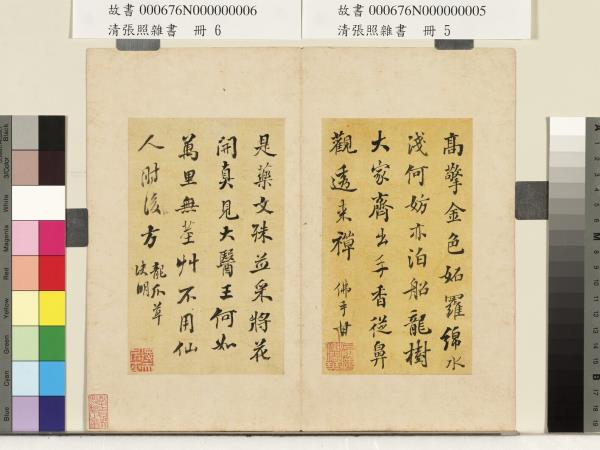 故書 000676N000000006
清張照雜書 冊 6
故書 000676N000000005
清張照雜書 冊 5
高擎金色妬羅綿水
淺何妨亦泊船龍樹
大家齊出手香從鼻
觀透來禪 佛手柑
是藥文殊並采將花
開真見大醫王何如
萬里無茎艸不用仙
人肘後方 龍爪草
決明
Black
3/Color
White
Magenta
Red
Yellow
Green
Cyan
Blue
A
M
B